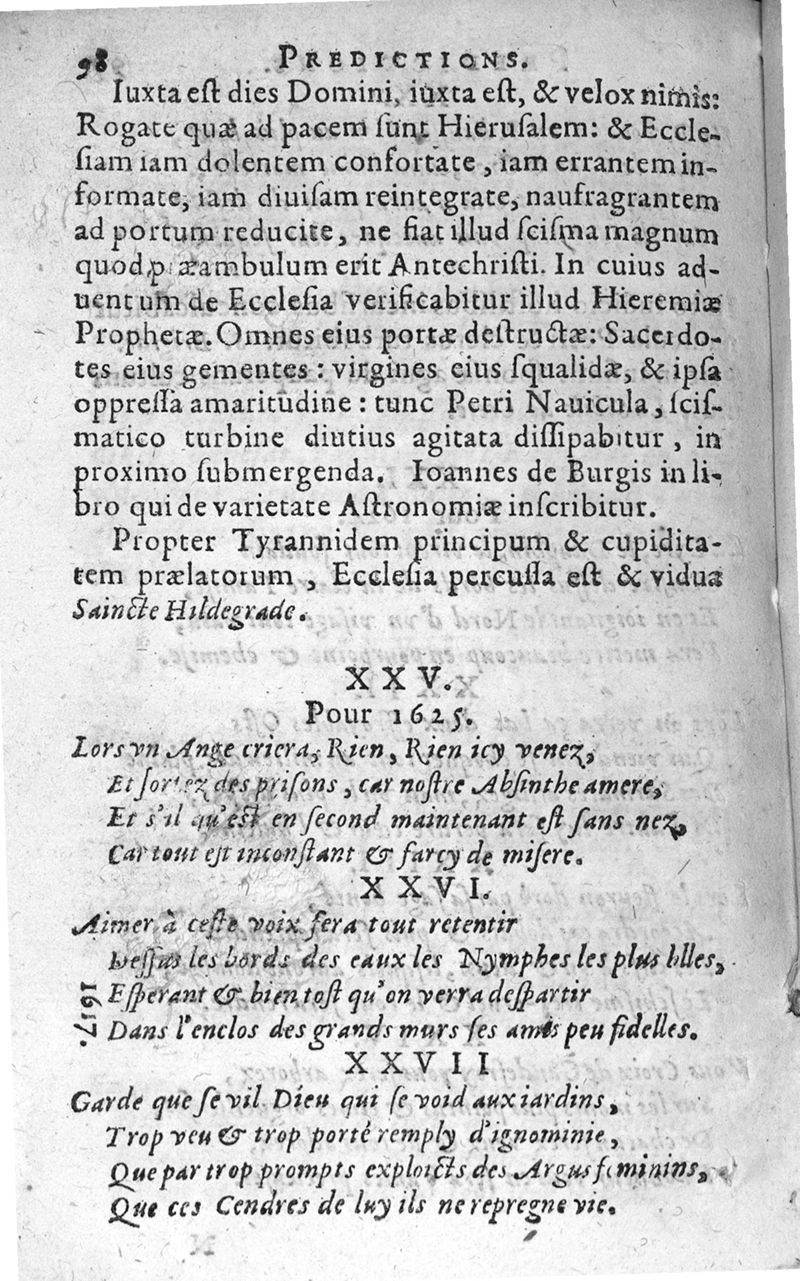 98 PREDICTIONS.
Iuxta eſt dies Domini, iuxta eſt, & velox nimis:
Rogate quæ ad pacem ſunt Hieruſalem: & Eccle-
ſiam iam dolentem confortate, iam errantem in-
formate, iam diuiſam reintegrate, naufragrantem
ad portum reducite, ne fiat illud ſciſma magnum
quod præambulum erit Antechriſti. In cuius ad-
uentum de Eccleſia verificabitur illud Hieremiæ
Prophetæ. Omnes eius portæ deſtructæ: Sacerdo-
tes eius gementes: virgines eius ſqualidæ, & ipſa
oppreſſa amaritudine: tunc Petri Nauicula, ſciſ-
matico turbine diutius agitata diſſipabitur, in
proximo ſubmergenda. Ioannes de Burgis in li-
bro qui de varietate Aſtronomiæ inſcribitur.
Propter Tyrannidem principum & cupidita-
tem prælatorum, Eccleſia percuſſa eſt & vidua
Saincte Hildegrade.
XXV.
Pour 1625.
Lors vn Ange criera, Rien, Rien icy venez,
Et ſortez des priſons, car noſtre Abſinthe amere,
Et s'il qu'eſt en ſecond maintenant eſt ſans nez,
Car tout eſt inconſtant & farcy de miſere.
XXVI.
Aimer à ceſte voix fera tout retentir
Deſſus les bords des eaux les Nymphes les plus blles,
1617. Eſperant & bien toſt qu'on verra deſpartir
Dans l'enclos des grands murs ſes amis peu fidelles.
XXVII
Garde que ſe vil Dieu qui ſe void aux iardins,
Trop veu & trop porté remply d'ignominie,
Que par trop prompts exploicts des Argus feminins,
Que ces Cendres de luy ils ne repregne vie.